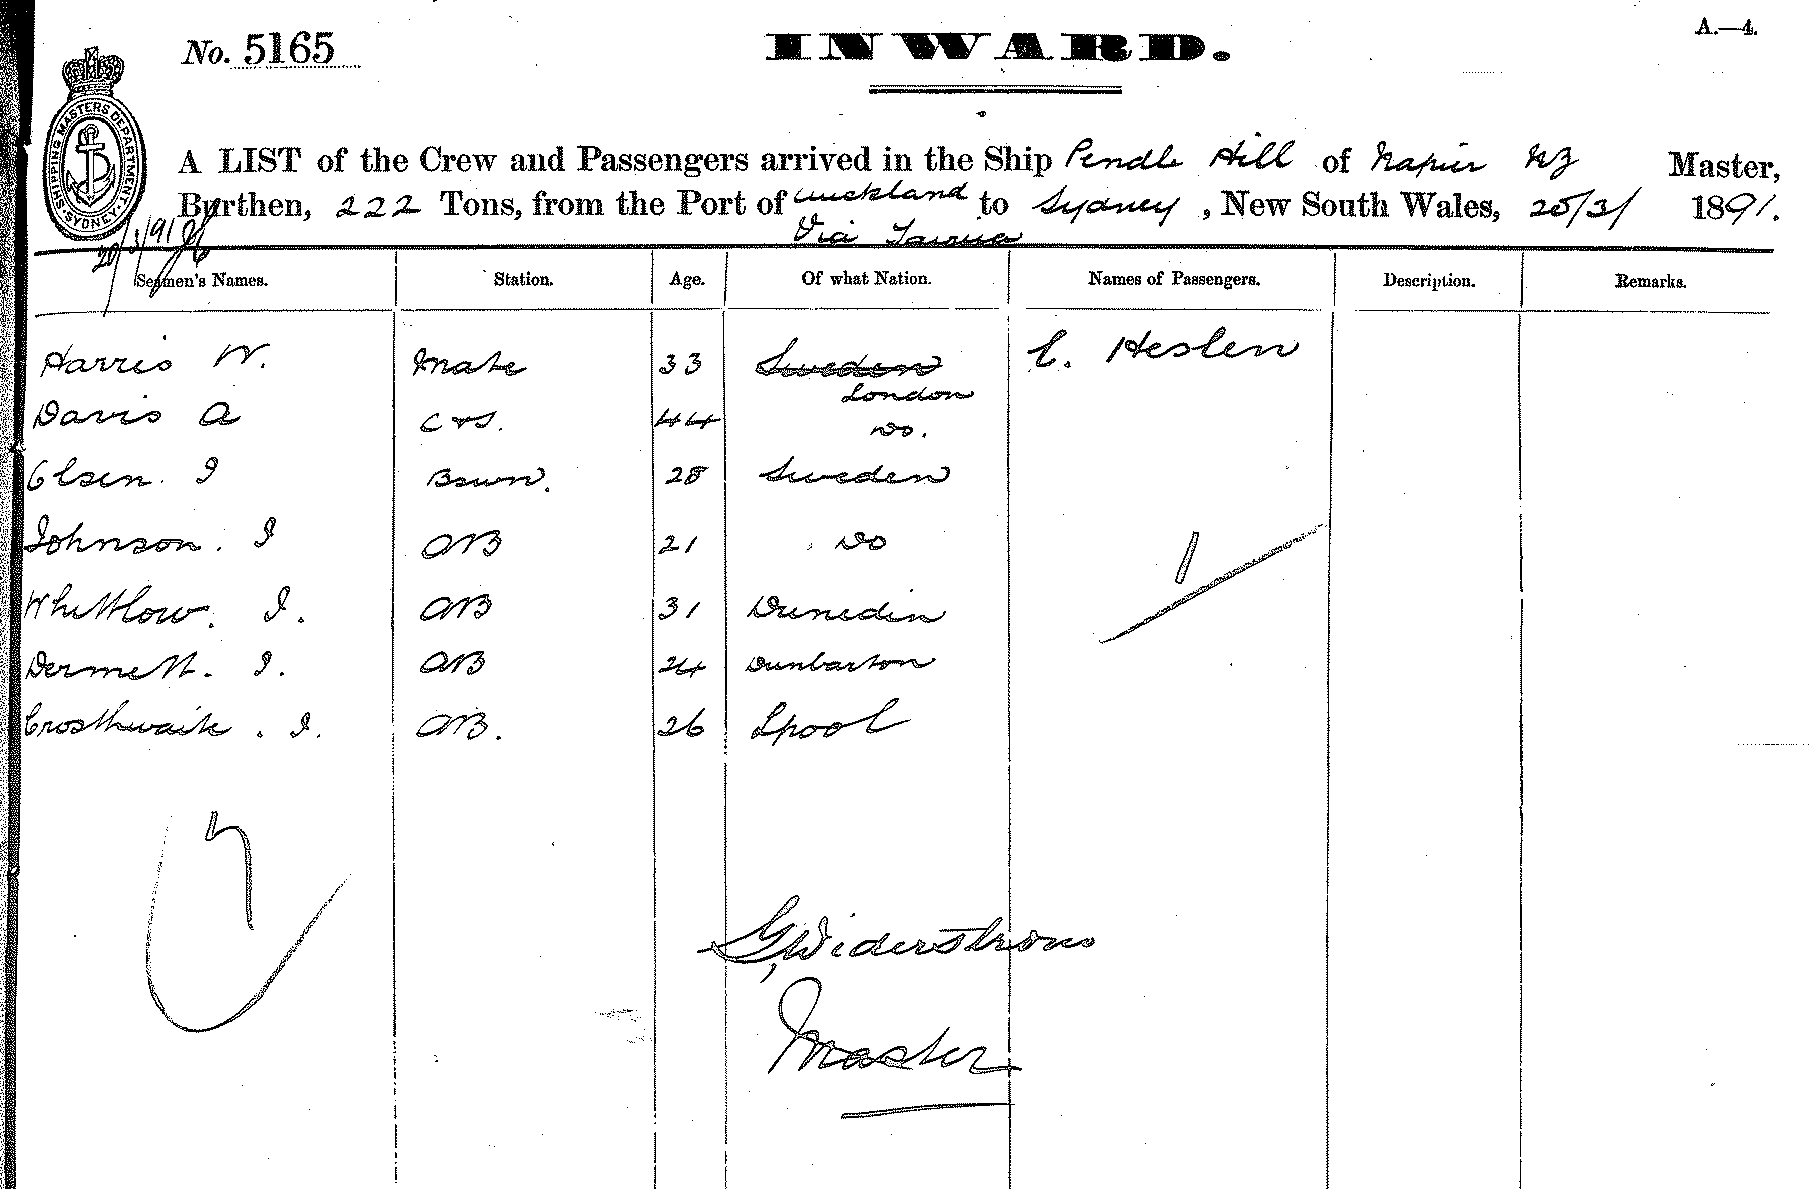 No. 5165
INWARD.
A.—4.
SHIPPING MASTERS DEPARTMENT
SYDNEY
A LIST of the Crew and Passengers arrived in the Ship Pendle Hill of Napier NZ Master,
Burthen, 222 Tons, from the Port of Auckland to Sydney, New South Wales, 20/3/ 1891.
Via Tairua
20/3/91
Seamen's Names. Station. Age. Of what Nation. Names of Passengers. Description. Remarks.
Harris W. Mate 33 Sweden C. Heslen
London
Davis A C&S. 44 Do.
Olsen. J Bswn. 28 Sweden
Johnson. J AB 21 Do
1
Whittlow. J. AB 31 Dunedin
Dermett. J. AB 24 Dunbarton
Crosthwaite. J. AB. 26 Lpool
7
G, Widerstrom
Master